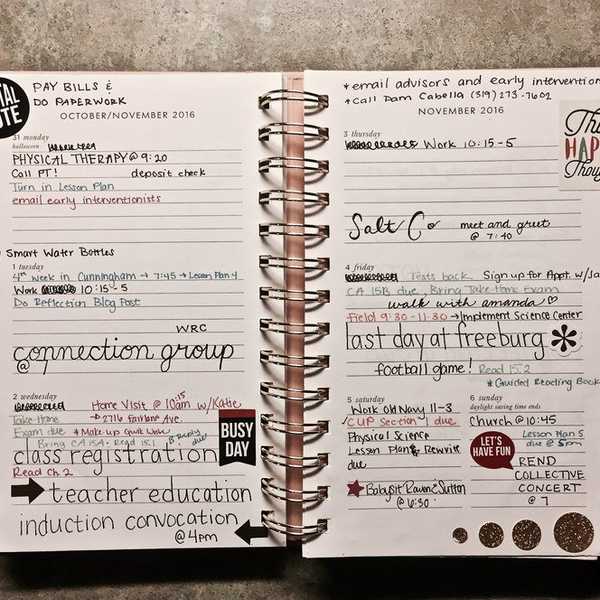 TAL
UTE
PAY BILLS &
DO PAPERWORK
OCTOBER/NOVEMBER 2016
31 monday
halloween
PHYSICAL THERAPY @ 9:20
Call PT! deposit check
Turn in Lesson Plan
email early interventionists
Smart Water Bottles
1 tuesday
4th week in Cunningham → 7:45 → Lesson Plan 4
Work 10:15-5
Do Reflection Blog Post
WRC
connection group
@
2 wednesday
Home Visit @ 10:15 am w/ Katie
Take-Home → 2716 Fairlane Ave.
Exam due * Make-up Quiz
Bring CA 15A. Read 15.1
due
class registration
BUSY
DAY
Read Ch. 2
teacher education
induction convocation
@ 4pm
* email advisors and early intervention
* Call Pam Cabella (319) 273-7602
NOVEMBER 2016
3 thursday
Work 10:15-5
Thi
HAPP
Though
Salt Co meet and greet
@ 7:40
4 friday
Tests back Sign up for Appt. w/
CA 15B due, Bring Take-Home Exam
walk with amanda
Field 9:30-11:30 → Implement Science Center
last day at freeburg *
football game! Read 15.2
* Guided Reading Book
5 saturday
Work Old Navy 11-3
CUP Section 1 due
Physical Science
Lesson Plan Rewrite
due
Babysit Raven & Sutton
@ 6:30
6 sunday
daylight saving time ends
Church @ 10:45
Lesson Plan 5
due @ 5pm
LET'S
HAVE FUN
REND
COLLECTIVE
CONCERT
@ 7